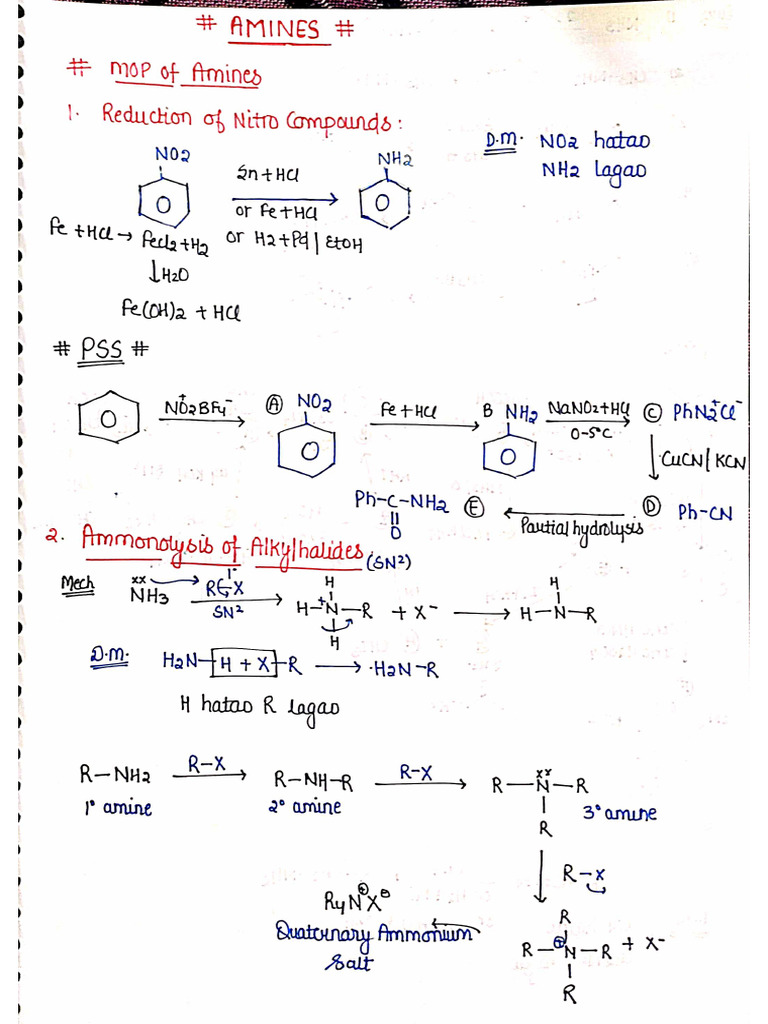 # AMINES #
# MOP of Amines
1. Reduction of Nitro Compounds:
D.M. NO2 hatao
NH2 lagao
NO2
Sn+HCl
or Fe+HCl
or H2+Pd/EtOH
NH2
Fe + HCl → FeCl2+H2
↓H2O
Fe(OH)2 + HCl
# PSS #
NO2+BF4-
(A) NO2
Fe+HCl
B NH2
NaNO2+HCl
0-5°C
(C) PhN2+Cl-
CuCN/KCN
(D) Ph-CN
Partial hydrolysis
(E) Ph-C-NH2
O
2. Ammonolysis of Alkylhalides (SN2)
Mech
NH3 R-X
SN2
H
H-N+-R + X-
H
H
H-N-R
D.M. H2N-H + X-R → H2N-R
H hatao R lagao
R-NH2 R-X R-NH-R R-X R-N-R
R
1° amine 2° amine 3° amine
R-X
R
R-N-R + X-
R
R4N⊕X⊖
Quaternary Ammonium
Salt